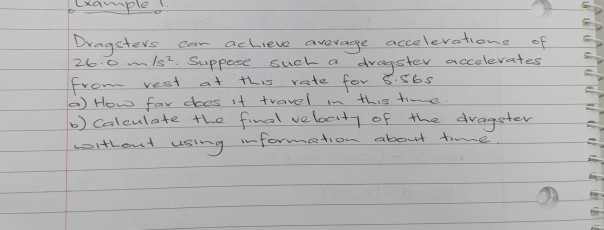 Example 1.
Dragsters can achieve average accelerations of
26.0 m/s². Suppose such a dragster accelerates
from rest at this rate for 5.56s
a) How far does it travel in this time.
b) Calculate the final velocity of the dragster
without using information about time.